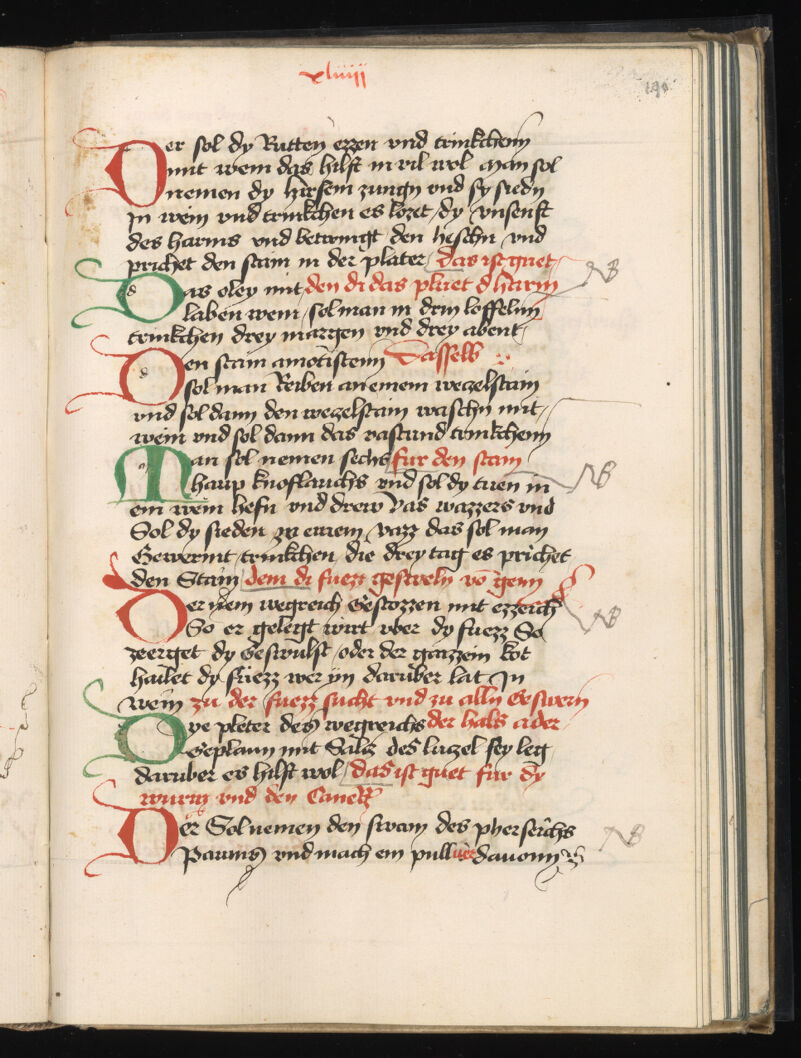 xliiiij
191
Der sol dy Rutten ezzen vnd trinkchenn
mit wein das hilft in vil wol Man sol
nemen dy hirsem zungn vnd sy siedn
Jn wein vnd trinkchen es lozet dy vnsenft
des harms vnd betwingt den heschn vnd
prichet den stain in der plater das ist guet
Das oley mit den di das pluet d harm NB
laben wein sol man in drin loffelnn
trinkchen drey margen vnd drey abent
Den stain amotistenn Dasselb
sol man Reiben an einem wezelstain
vnd sol dann den wezelstain waschn mit
wein vnd sol dann das vastund trinkchenn
Man sol nemen sechs fur den stain
haup knoflauchs vnd sol dy tuen in NB
ein wein hefn vnd drew vas wazzers vnd
Sol dy sieden zu einem vazz das sol man
Gewermt trinkchen die drey tag es prichet
den Stain dem di fuezz gesweln vo genn
Der nem wegreich Gestozzen mit ezzeich
So er gelegt wirt vber dy fuezz So NB
zeerget dy Geswulst oder der gaizzein kot
hailet dy fuezz wer yn daruber lat Jn
wein zu der fuezz sucht vnd zu alln Geswern
Dye pleter des wegreichs der hals ader
Geplaun mit Salz des luzel sey leg
daruber es hilft wol das ist guet fur dy
wurm vnd den Cancer
Der Sol nemen den swam des pherseichs
Paums vnd mach ein pulluer dauonn NB